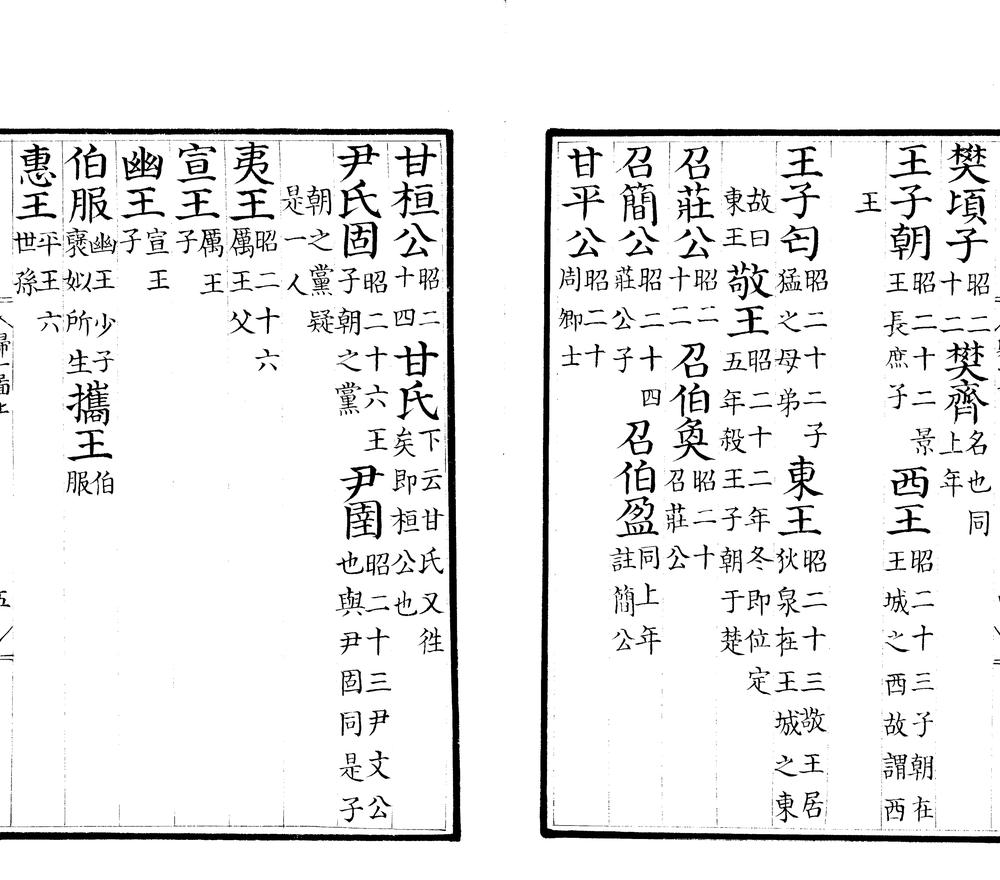 樊頃子昭二十二樊齊名也同上年
王子朝昭二十二景王長庶子西王昭二十三子朝在王城之西故謂西
王
王子匄昭二十二子猛之母弟東王昭二十三敬王居狄泉在王城之東
故曰東王敬王昭二十二年冬即位定五年殺王子朝于楚
召莊公昭二十二召伯奐昭二十召莊公
召簡公昭二十四莊公子召伯盈同上年註簡公
甘平公昭二十周卿士
甘桓公昭二十四甘氏下云甘氏又徃矣即桓公也
尹氏固昭二十六王子朝之黨尹圉昭二十三尹文公也與尹固同是子
朝之黨疑是一人
夷王昭二十六厲王父
宣王厲王子
幽王宣王子
伯服幽王少子褒姒所生攜王伯服
惠王平王六世孫